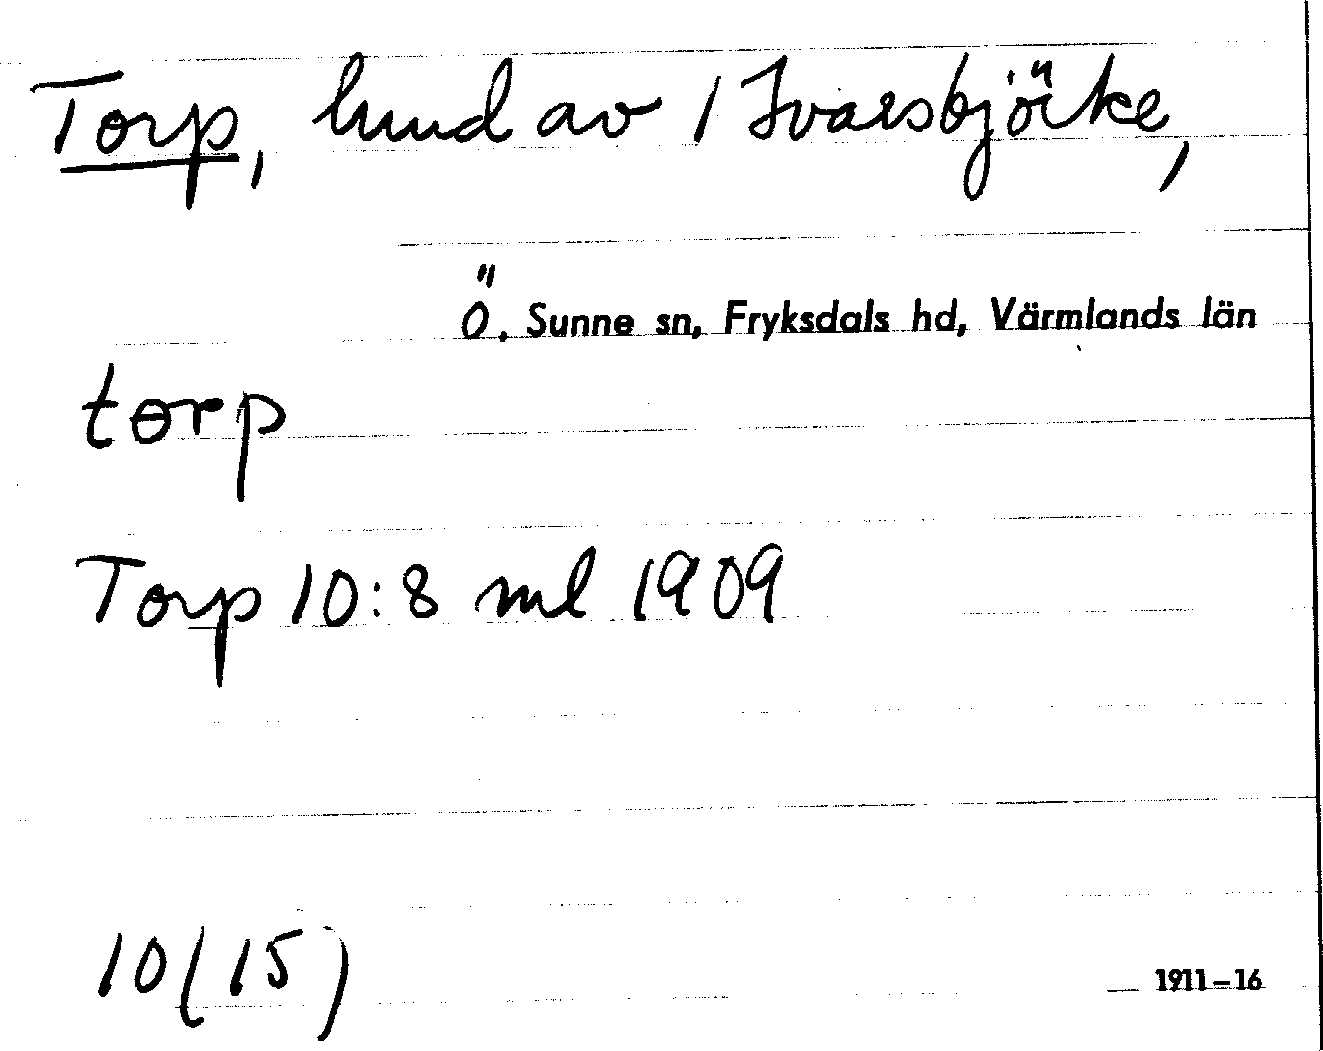 Torp, hmd av 1 Ivarsbjörke,
Ö. Sunne sn, Fryksdals hd, Värmlands län
tɵrp
Torp 10:8 ml 1909
10(15)
1911–16